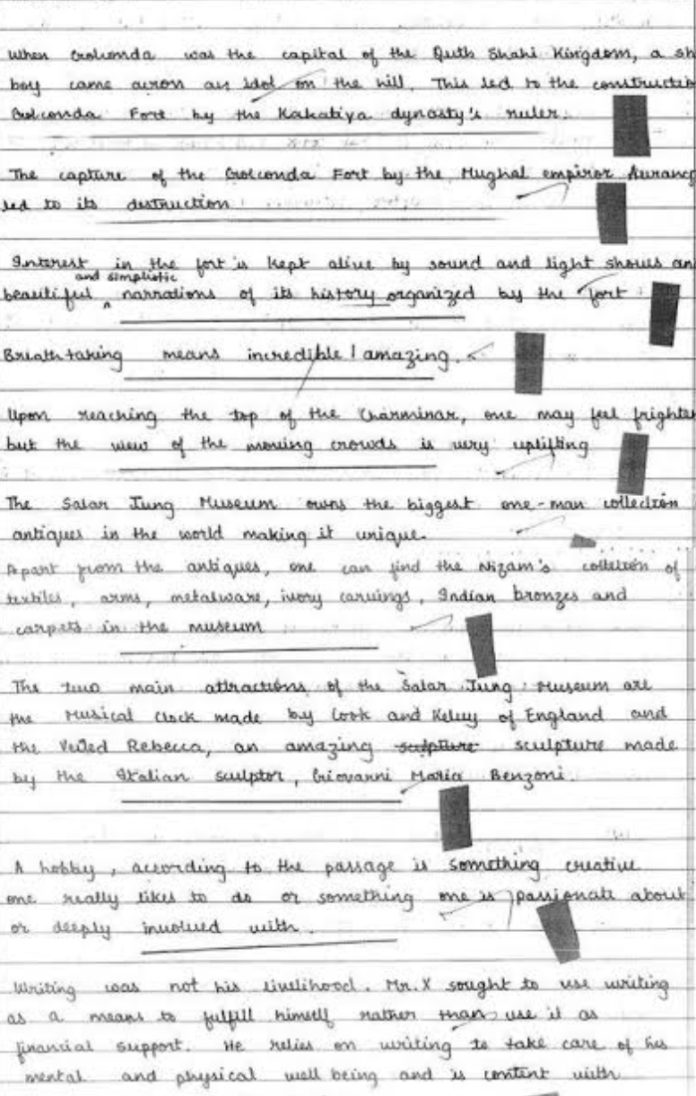 When Golconda was the capital of the Qutb Shahi Kingdom, a sh
boy came across an idol on the hill. This led to the constructio
Golconda Fort by the Kakatiya dynasty's ruler.
The capture of the Golconda Fort by the Mughal emperor Aurang
led to its destruction
Interest in the fort is kept alive by sound and light shows an
and simplistic
beautiful narrations of its history organized by the fort.
Breathtaking means incredible / amazing.
Upon reaching the top of the Charminar, one may feel frighte
but the view of the moving crowds is very uplifting
The Salar Jung Museum owns the biggest one-man collection
antiques in the world making it unique.
Apart from the antiques, one can find the Nizam's collection of
textiles, arms, metalware, ivory carvings, Indian bronzes and
carpets in the museum
The two main attractions of the Salar Jung Museum are
the Musical Clock made by Cook and Kelvy of England and
the Veiled Rebecca, an amazing sculpture sculpture made
by the Italian sculptor, Giovanni Maria Benzoni.
A hobby, according to the passage is something creative
one really likes to do or something one is passionate about
or deeply involved with.
Writing was not his livelihood. Mr. X sought to use writing
as a means to fulfill himself rather than use it as
financial support. He relies on writing to take care of his
mental and physical well being and is content with